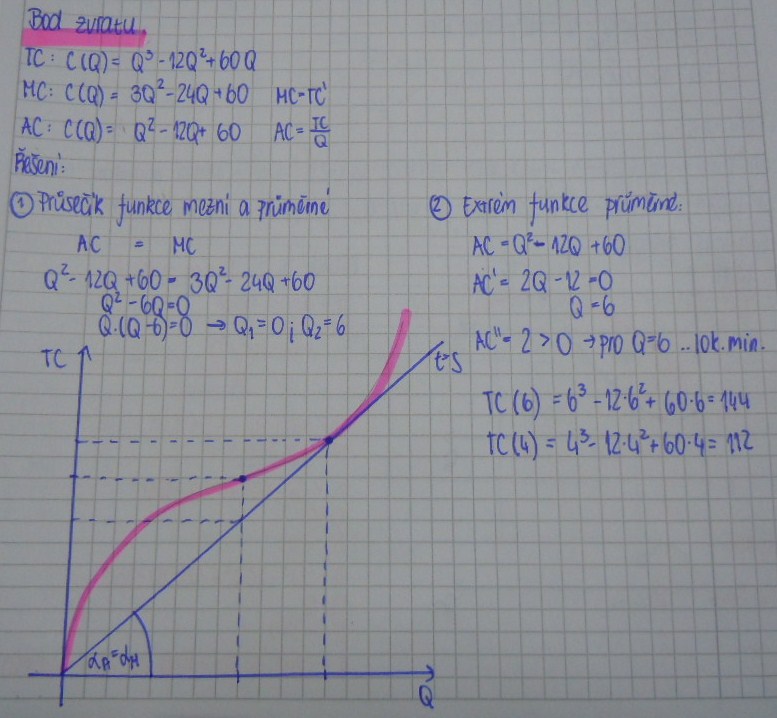 Bod zvratu.
TC: C(Q) = Q³ - 12Q² + 60Q
MC: C(Q) = 3Q² - 24Q + 60 MC = TC'
AC: C(Q) = Q² - 12Q + 60 AC = TC/Q
Řešení:
① Průsečík funkce mezní a průměrné
AC = MC
Q² - 12Q + 60 = 3Q² - 24Q + 60
Q² - 6Q = 0
Q.(Q - 6) = 0 → Q₁ = 0 ; Q₂ = 6
② Extrém funkce průměrné:
AC = Q² - 12Q + 60
AC' = 2Q - 12 = 0
Q = 6
AC'' = 2 > 0 → pro Q = 6 ... lok. min.
TC(6) = 6³ - 12·6² + 60·6 = 144
TC(4) = 4³ - 12·4² + 60·4 = 112
TC
t=s
αA = αM
Q